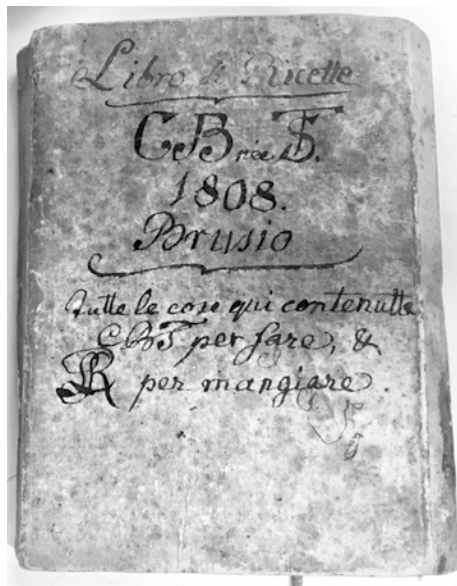 Libro di Ricette
1808.
Brusio
tutte le cose qui contenutte
CBT per fare, &
per mangiare.